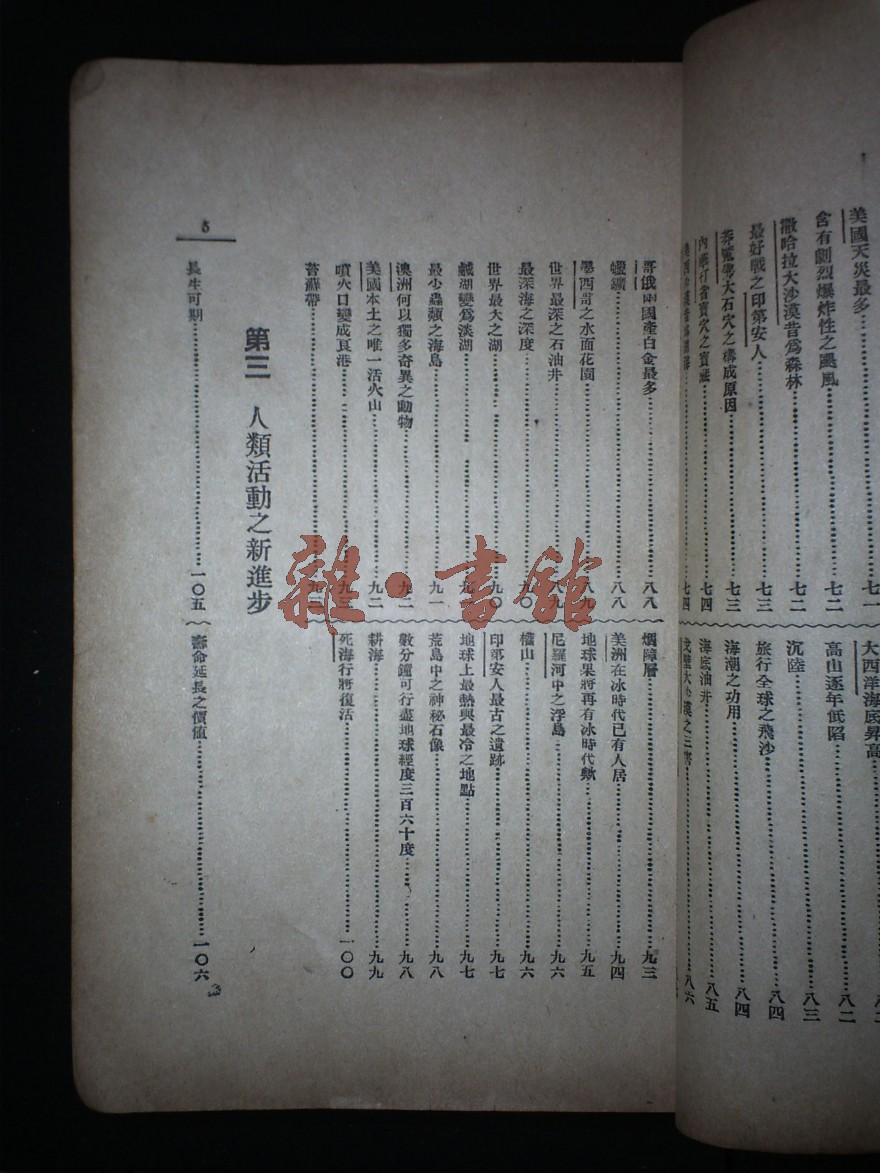 美國天災最多……七一
含有劇烈爆炸性之颶風……七二
撒哈拉大沙漠昔爲森林……七二
最好戰之印第安人……七三
大石穴之構成原因……七三
內華打省寶穴之寶藏……七四
大西洋海底昇高
高山逐年低陷……八二
沉陸……八三
旅行全球之飛沙……八四
海潮之功用……八四
海底油井……八五
戈壁大沙漠之三害……八六
哥俄兩國產白金最多……八八
蠟鑛……八八
墨西哥之水面花園……八九
世界最深之石油井……八九
最深海之深度……九〇
世界最大之湖……九〇
鹹湖變爲淡湖……九一
最少蟲類之海島……九一
澳洲何以獨多奇異之動物……九二
美國本土之唯一活火山……九二
噴火口變成良港……九三
苔蘚帶……九三
烟障層……九三
美洲在冰時代已有人居……九四
地球果將再有冰時代歟……九五
尼羅河中之浮島……九六
檣山……九六
印第安人最古之遺跡……九七
地球上最熱與最冷之地點……九七
荒島中之神秘石像……九八
數分鐘可行盡地球經度三百六十度……九八
耕海……九九
死海行將復活……一〇〇
第三 人類活動之新進步
長生可期……一〇五
壽命延長之價值……一〇六
5
雜·書館